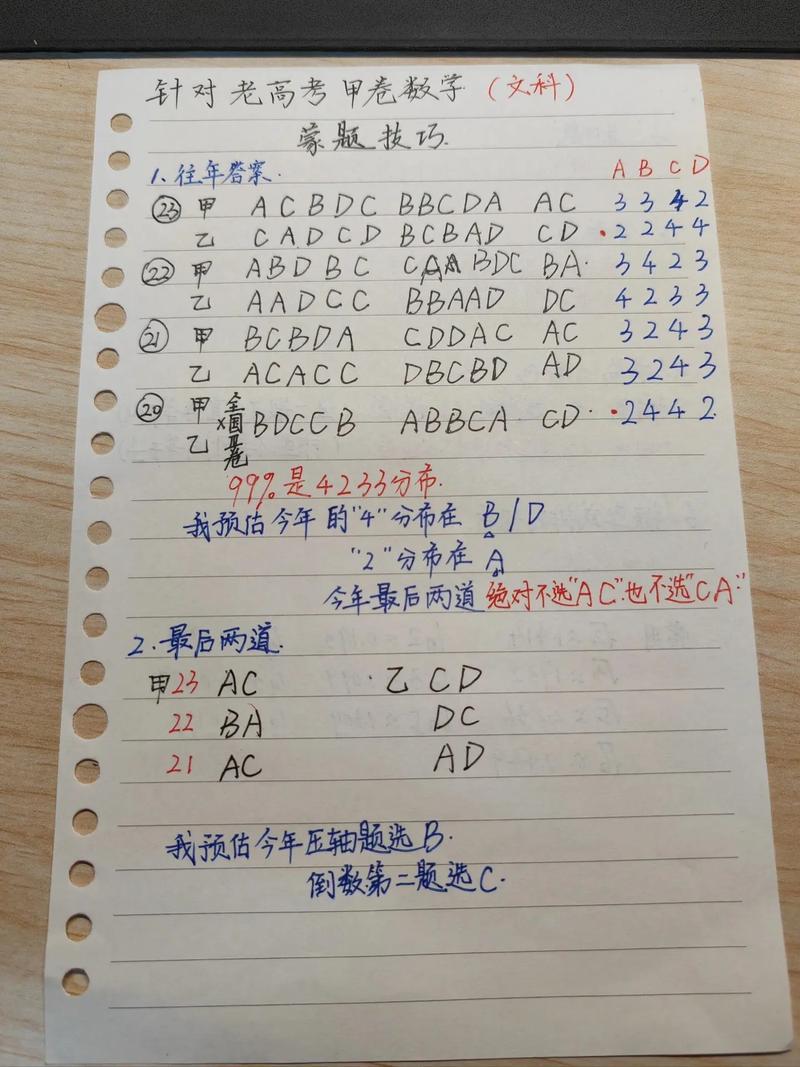 针对老高考甲卷数学(文科)
蒙题技巧.
1、往年答案.
A B C D
㉓ 甲 A C B D C B B C D A A C 3 3 4 2
乙 C A D C D B C B A D C D ·2 2 4 4
㉒ 甲 A B D B C C A A B D C B A. 3 4 2 3
乙 A A D C C B B A A D D C 4 2 3 3
㉑ 甲 B C B D A C D D A C A C 3 2 4 3
乙 A C A C C D B C B D A D 3 2 4 3
⑳ 甲 乙 全国Ⅱ卷 B D C C B A B B C A C D. ·2 4 4 2
99%是4233分布.
我预估今年的"4"分布在 B/D
"2"分布在 A
今年最后两道绝对不选"AC".也不选"CA".
2.最后两道.
甲23 AC · 乙 CD
22 BA DC
21 AC AD
我预估今年压轴题选B.
倒数第二题选C.